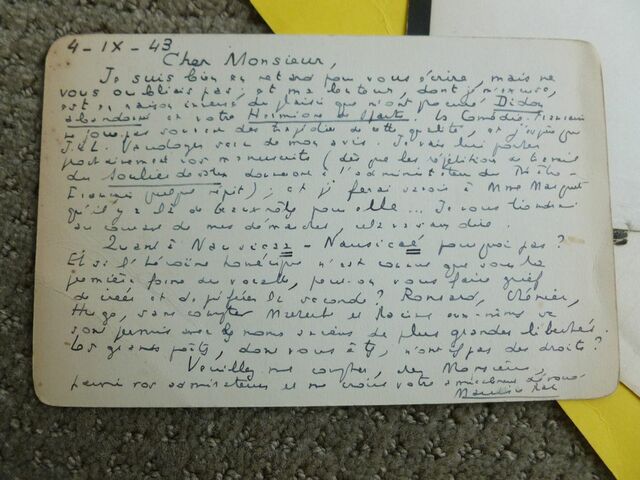 4-IX-43
Cher Monsieur,
Je suis bien en retard pour vous écrire, mais ne
vous oubliais pas, et ma lenteur, dont je m'excuse,
est en raison inverse du plaisir que m'ont procuré Didon
abandonnée et votre Hermione de Sparte. La Comédie-Française
ne joue pas souvent des tragédies de cette qualité, et j'espère que
J.-L. Vaudoyer sera de mon avis. Je vais lui porter
prochainement vos manuscrits (dès que les répétitions de
du Soulier de satin donneront à l'administrateur du Théâtre-
Français quelque répit); et je ferai savoir à Mme Marquet
qu'il y a là de beaux rôles pour elle... Je vous tiendrai
au courant de mes démarches, cela va sans dire.
Quant à Nausicaa - Nausicaé pourquoi pas?
Et si l'héroïne homérique n'est connue que sous la
première forme du vocable, peut-on vous faire grief
de créer et de préférer la seconde? Ronsard, Chénier,
Hugo, sans compter Musset et Racine eux-mêmes se
sont permis avec les noms anciens de plus grandes libertés.
Les grands poètes, dont vous êtes, n'ont-ils pas des droits?
Veuillez me compter, cher Monsieur,
parmi vos admirateurs et me croire votre dévoué
Maurice Rat